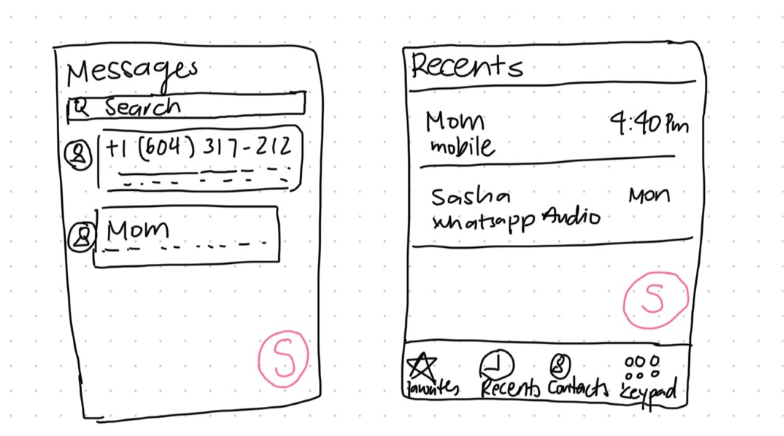 Messages
Search
+1 (604) 317-212
Mom
S
Recents
Mom 4:40 Pm
mobile
Sasha Mon
whatsapp Audio
S
Favorites Recents Contacts Keypad